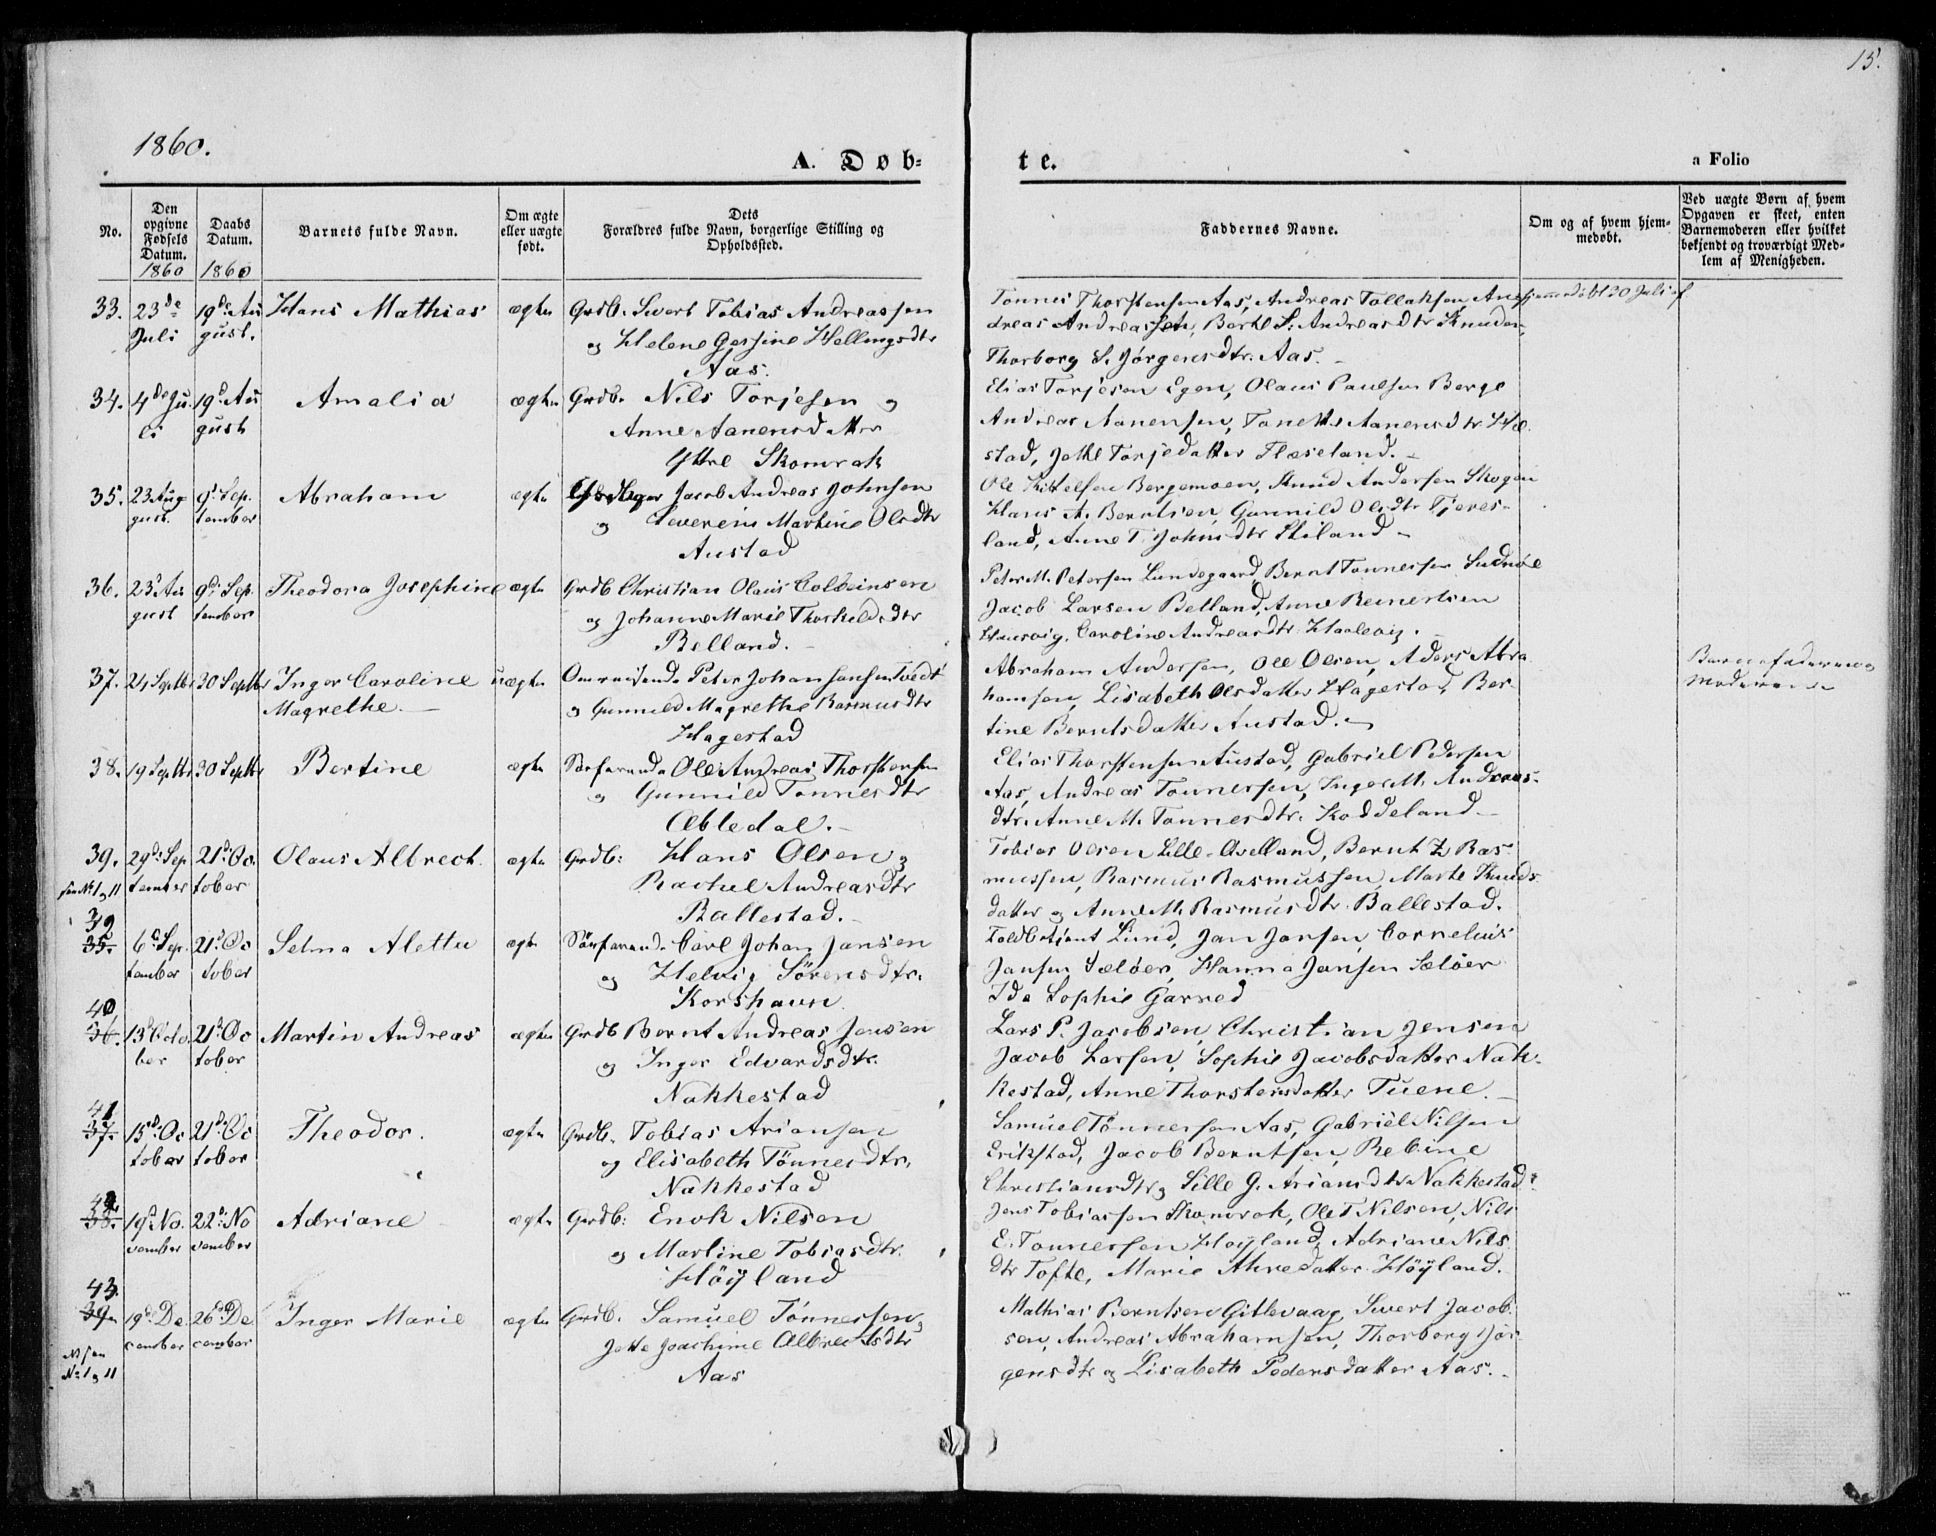 15.
1860.
A. Døb-
te.
a Folio
No.
Den opgivne Fødsels Datum. 1860
Daabs Datum. 1860
Barnets fulde Navn.
Om ægte eller uægte født.
Dets Forældres fulde Navn, borgerlige Stilling og Opholdssted.
Faddernes Navne.
Om og af hvem hjemmedøbt.
Ved uægte Børn af hvem Opgaven er skeet, enten Barnemoderen eller hvilket bekjendt og troværdigt Medlem af Menigheden.
33. 23de 19de Au Hans Mathias ægte Grdb. Sivert Tobias Andreassen
Juli gust. og Helene Gessine Hellingsdtr
Aas.
Tønnes Thorstensen Aas, Andreas Tollaksen An hjemmedøbt 30 Juli af
dreas Andreassen, Berte S. Andreasdtr Knuden,
Thorborg S. Jørgensdtr. Aas.
34. 4de Ju 19d Au Amalia ægte Grdb. Nils Torjesen og
li gust Anne Aanensdatter
Yttre Skomrak
Elias Torjesen Egen, Olaus Paulsen Berge
Andreas Aanensen, Tonette Aanensdtr Hæ
stad, Jette Torjedatter Flæseland.
35. 23 Aug 9d Sep. Abraham ægte Jacob Andreas Johnsen
gust. tember og Severine Martine Olsdtr
Austad
Ole Kittelsen Bergemoen, Knud Andersen Skogen
Hans A. Berntsen, Gunnild Olsdtr Tjeres-
land, Anne T. Johnsdtr Skiland
36. 23d Au 9d Sep. Theodora Josephine ægte Grdb Christian Olaus Colbeinsen
gust tember og Johanne Marie Thorkildsdtr
Belland.
Peter M. Petersen Lundegaard, Bernt Tønnessen
Jacob Larsen Belland, Anne Reinertsen
Caroline Andreasdtr.
37. 24 Septbr 30 Septbr Inger Caroline uægte Omreisende Peter Johan Jansen Tvedt
Magrethe. og Gunnild Magrethe Rasmusdtr
Hagestad
Abraham Andersen, Ole Olsen, Aders Abra
hamsen, Lisabeth Olsdatter Hagestad, Ber-
tine Berntsdatter Austad.
Barnefaderen og
Moderen
38. 19 Septbr 30 Septbr Bertine ægte Søefarende Ole Andreas Thorstensen
og Gunnild Tønnesdtr
Æbledal.
Elias Thorstensen Austad, Gabriel Pedersen
Aas, Andreas Tønnessen, Inger M. Andreas-
dtr. Anne M. Tønnesdtr. Koddeland
39. 29d Sep 21d Oc. Olaus Albrect. ægte Grdb: Hans Olsen og
No 1 og 11 tember tober Rachel Andreasdtr
Ballestad.
Tobias Olsen Lille-Qvelland, Bernt Z Ras-
mussen, Rasmus Rasmussen, Marte Knuds
datter og Anne M. Rasmusdtr. Ballestad.
39
35. 6d Sep. 21d Oc Selma Alette ægte Søefarende Carl Johan Jansen
tember tober og Helvig Sørensdtr.
Korshavn.
Toldbetjent Lund, Jan Jansen, Cornelius
Jansen Sæløer, Hanna Jansen Sæløer
Ida Sophie Garred
40
36. 13d Octo 21d Oc Martin Andreas ægte Grdb Bernt Andreas Jensen
ber tober og Inger Edvardsdtr.
Nakkestad
Lars P. Jacobsen, Christian Jensen
Jacob Larsen, Sophie Jacobsdatter Nak-
kestad, Anne Thorstensdatter Tuene.
41
37. 15d Oc 21d Oc Theodor. ægte Grdb. Tobias Ariansen
tober tober og Elisabeth Tønnesdtr.
Nakkestad
Samuel Tønnessen Aas, Gabriel Nilsen
Erikstad, Jacob Berntsen, Rebine
Christiansdtr og Sille G. Ariansdtr Nakkestad.
42
38. 19d No 22d No Adriane ægte Grdb: Enok Nilsen
vember vember og Martine Tobiasdtr.
Höÿland
Jens Tobiassen Skomrak, Ole T Nilsen, Nils
E. Tønnessen Höÿland, Adriane Nils
dtr Tofte, Marie Höÿland.
43.
39. 19de De 26de De Inger Marie ægte Grdb. Samuel Tønnessen og
cember cember Jette Joachime Albrectsdtr
No 1 og 11 Aas
Mathias Berntsen Gitlevaag, Sivert Jacob-
sen, Andreas Abrahamsen, Thorborg Jør-
gensdtr og Lisabeth Pedersdatter Aas.